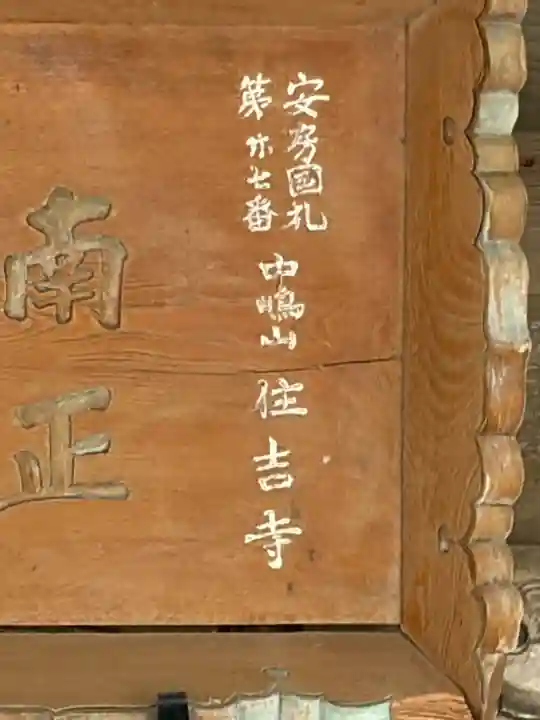 安房国札
第廿七番
中嶋山
住吉寺
南
正